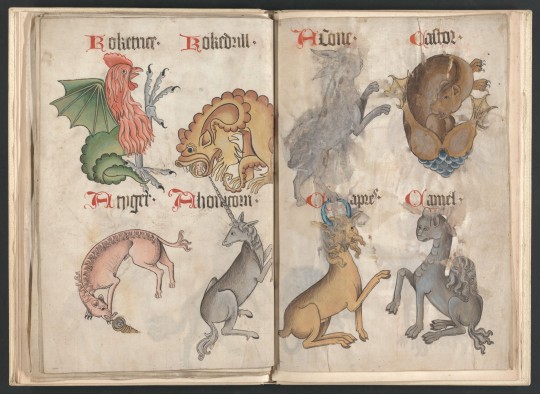 Koketrice · Kokedrill ·
A tyger · Ahonycorn ·
A Cone · Castor ·
Capre · Camel ·